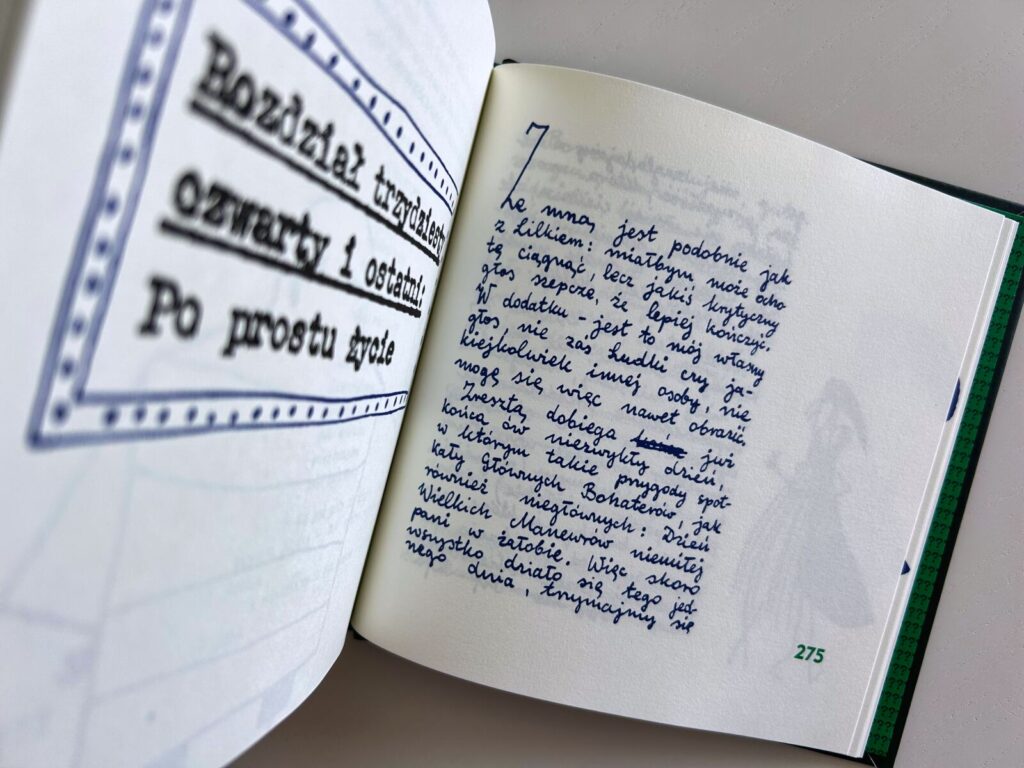 Rozdział trzydziesty
czwarty i ostatni:
Po prostu życie
Ze mną jest podobnie jak
z Lilkiem: miałbym może ocho
tę ciągnąć, lecz jakiś krytyczny
głos szepcze, że lepiej kończyć.
W dodatku – jest to mój własny
głos, nie zaś Ludki czy ja-
kiejkolwiek innej osoby, nie
mogę się więc nawet obrazić.
Zresztą dobiega już
końca ów niezwykły dzień,
w którym takie przygody spot-
kały Głównych Bohaterów, jak
również niegłównych: Dzień
Wielkich Manewrów niemiłej
pani w żałobie. Więc skoro
wszystko działo się tego jed-
nego dnia, trzymajmy się
275